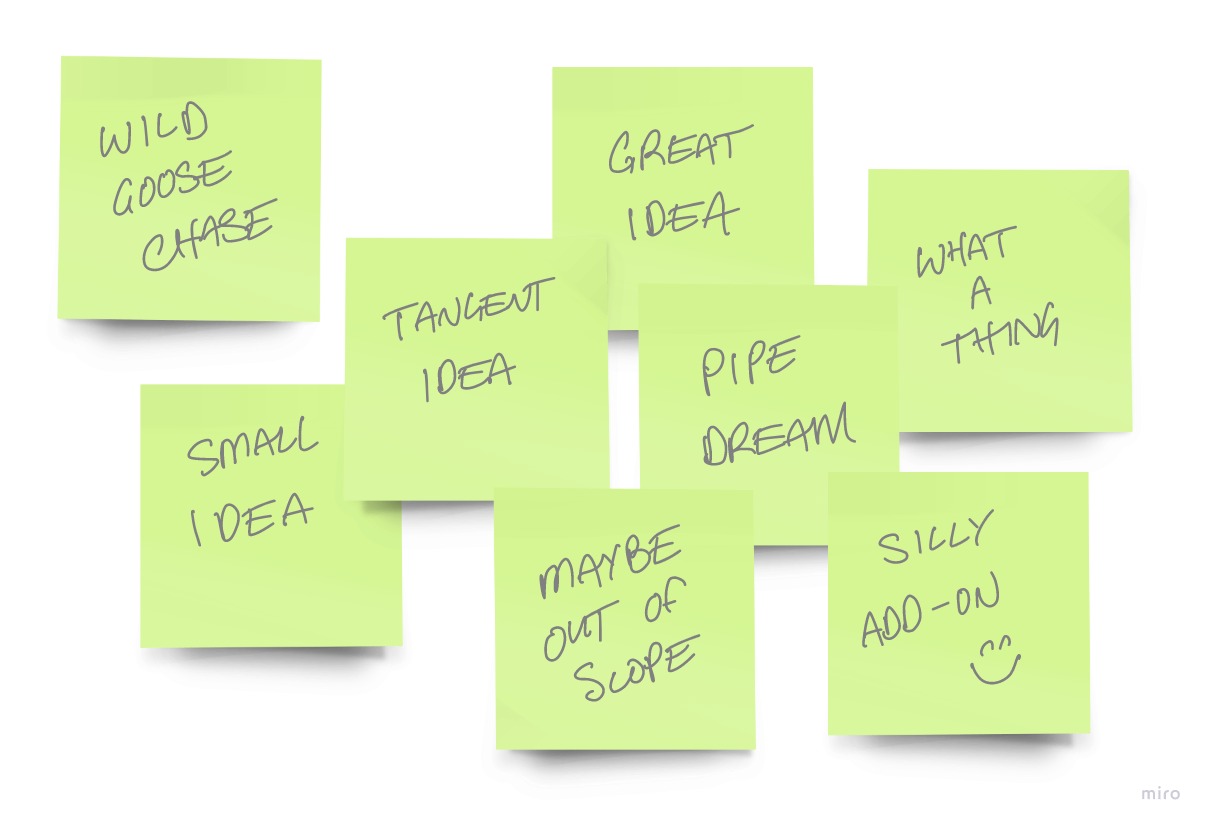 WILD
GOOSE
CHASE
GREAT
IDEA
WHAT
A
THING
TANGENT
IDEA
PIPE
DREAM
SMALL
IDEA
MAYBE
OUT OF
SCOPE
SILLY
ADD-ON
miro